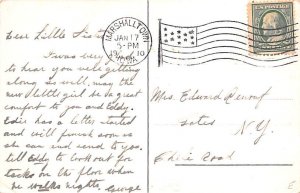 Dear Little Sister
I was very glad
to hear you were getting
along so well, may the
new little girl be a great
comfort to you and Eddy.
Edie has a letter started
and will finish soon as
she can and send to you.
till Eddy to look out for
tacks on the floor when
he walks nights. George
MARSHALLTOWN
JAN 17
5-PM
IOWA
Mrs. Edward
N. Y.
Road